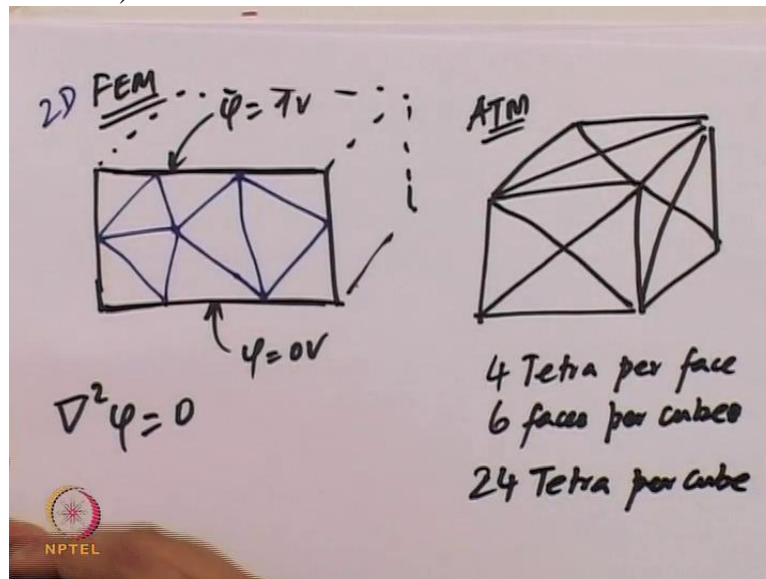 2D FEM
φ = 1V
φ = 0V
∇²φ = 0
ATM
4 Tetra per face
6 faces per cubes
24 Tetra per cube
NPTEL